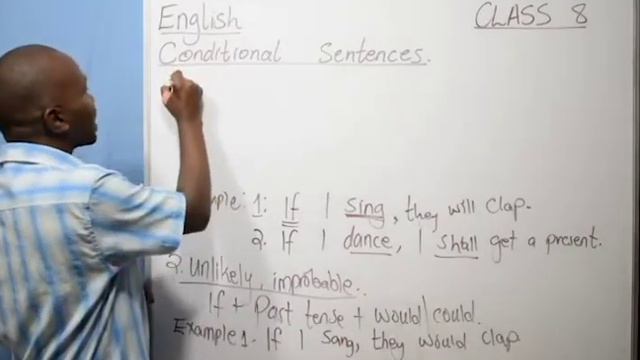 English CLASS 8
Conditional Sentences.
ple: 1: If I sing, they will clap.
2. If I dance, I shall get a present.
2. Unlikely, improbable.
If + Past tense + would/could.
Example 1. If I sang, they would clap